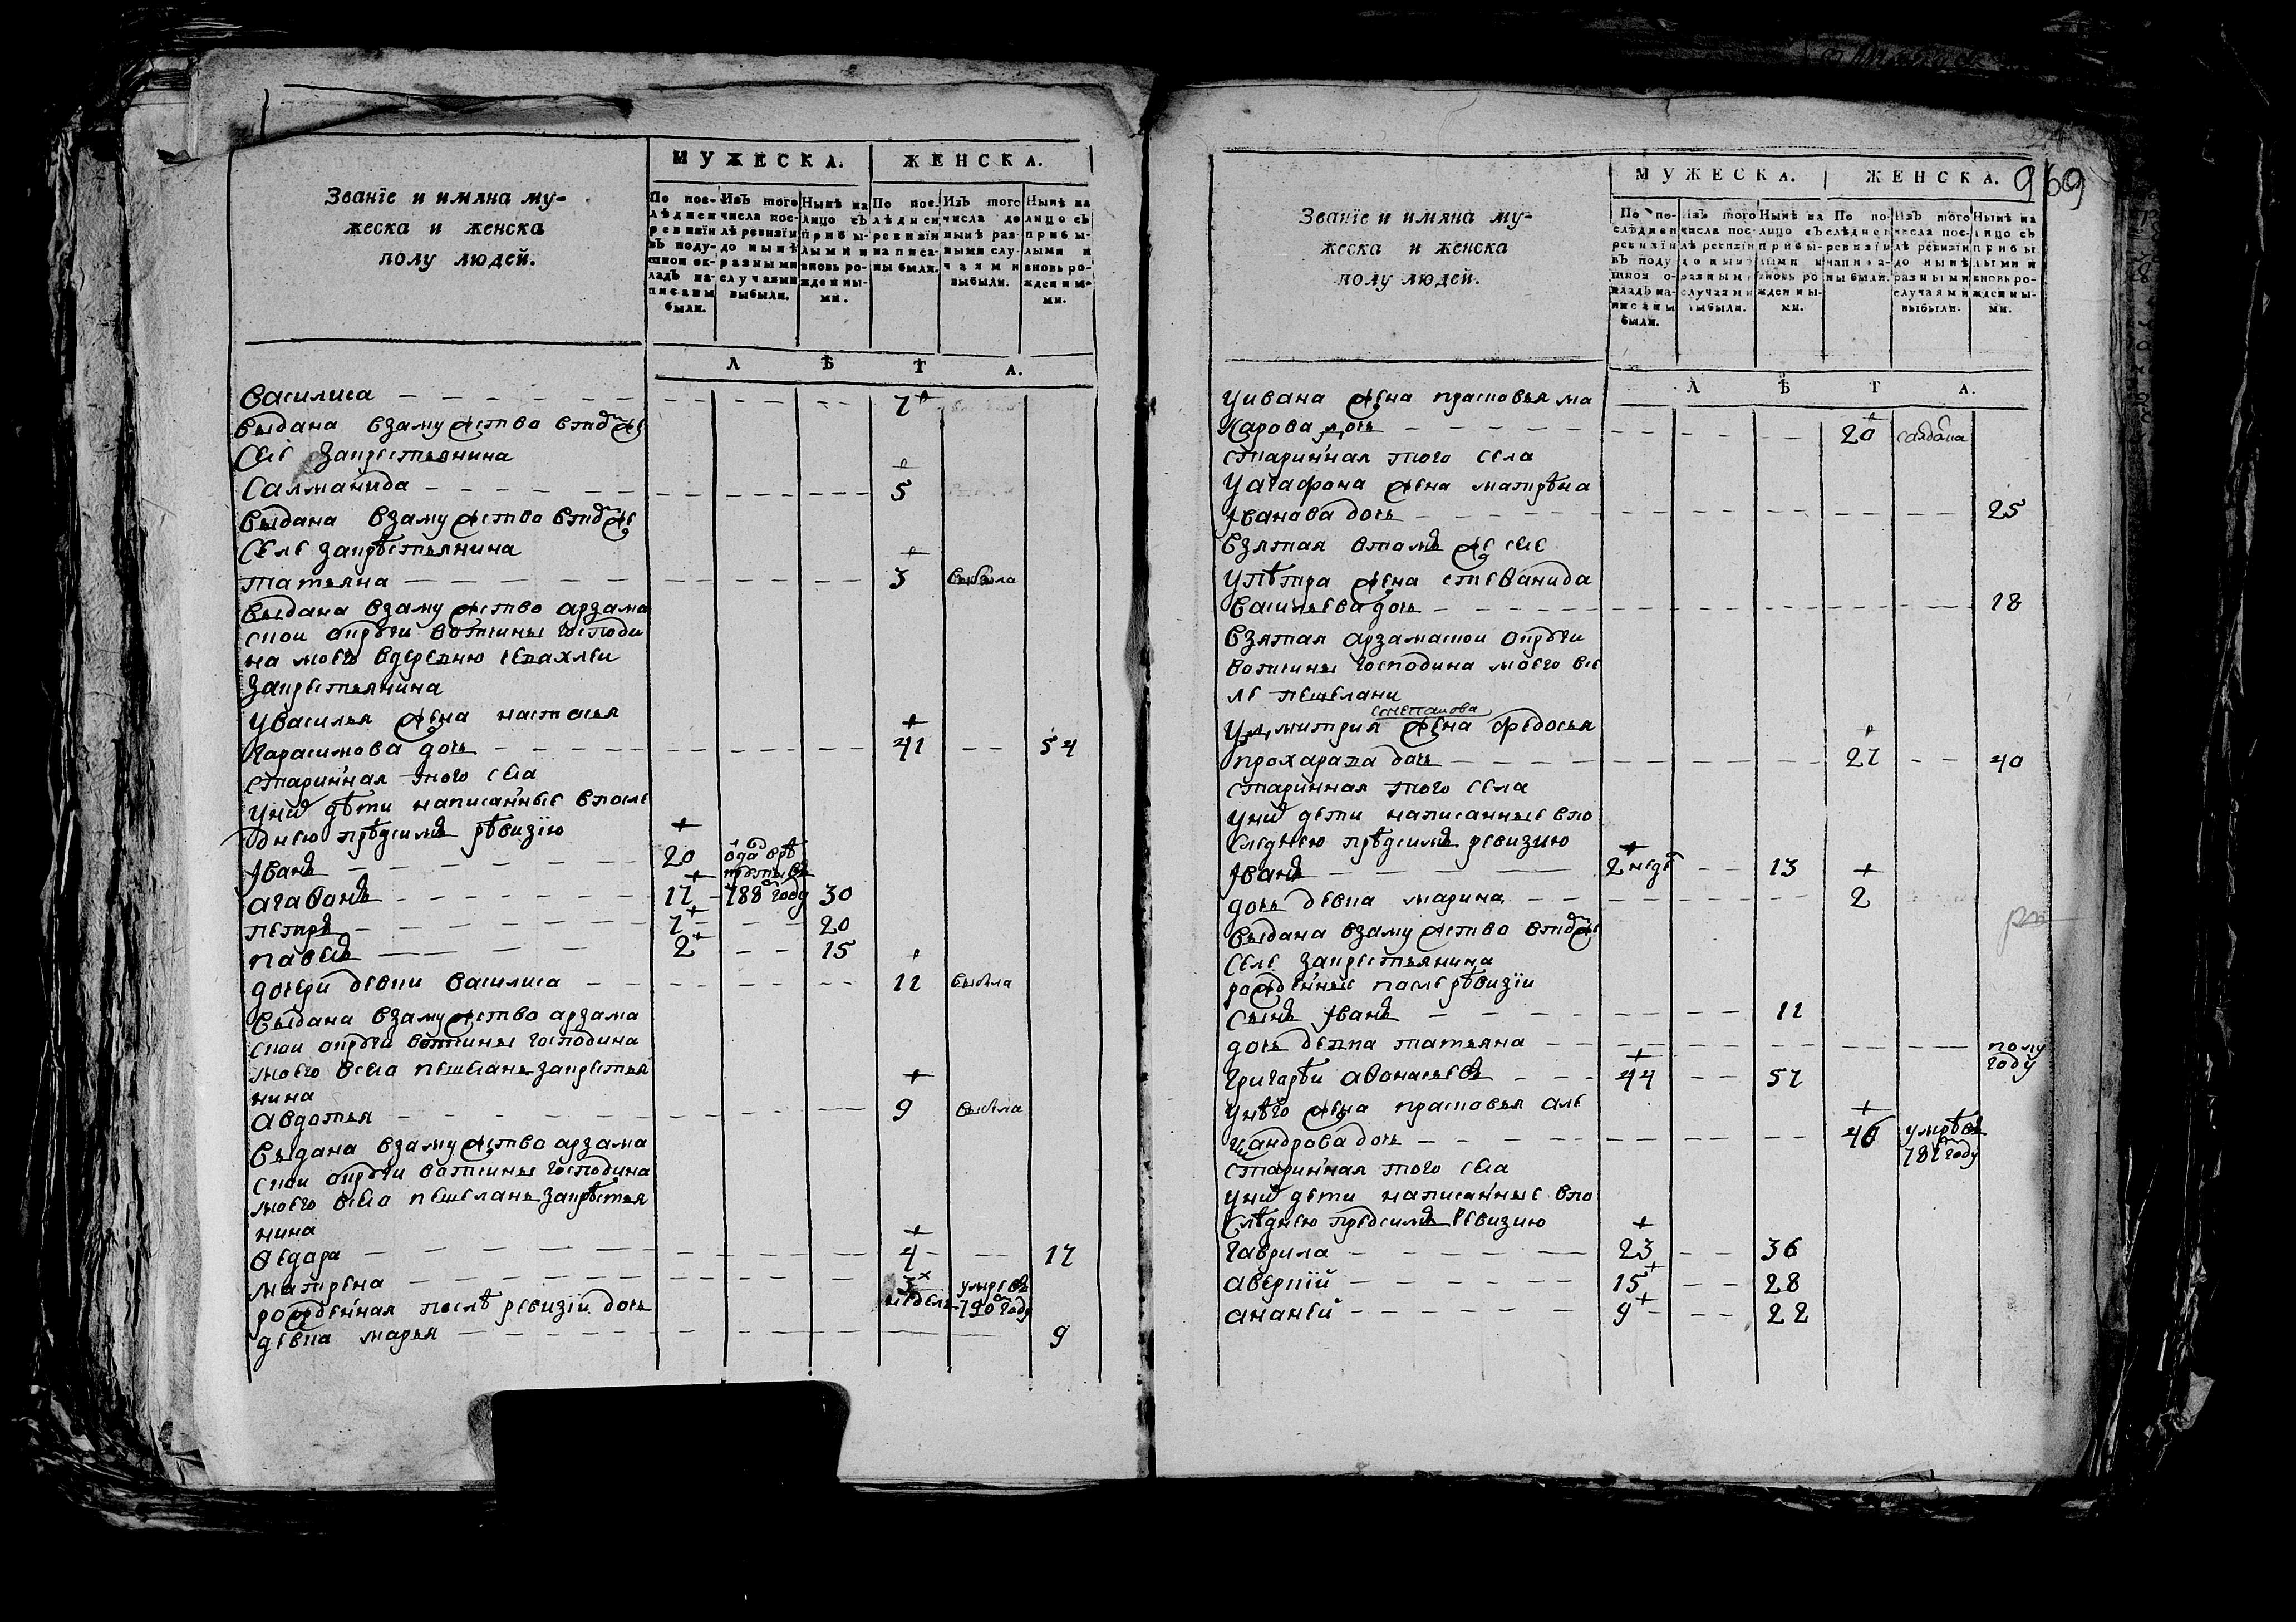 Званїе и имяна му-
жеска и женска
полу людей.
МУЖЕСКА. ЖЕНСКА.
По пос-
лѣдней
ревизїи
въ поду-
шной ок-
ладъ на-
писаны
были.
Изъ того
числа пос-
лѣ ревизїи
до нынѣ
разными
случаями
выбыли.
Нынѣ на
лицо съ
прибы-
лыми и
вновь ро-
жденны-
ми.
По пос-
лѣдней
ревизїи
написа-
ны были.
Изъ того
числа до
нынѣ раз-
ными слу-
чаями
выбыли.
Нынѣ на
лицо съ
прибы-
лыми и
вновь ро-
жденны-
ми.
Л Ѣ Т А.
Василиса 7
выдана взамужство втомже
селе закрестьянина
Салманида 5
выдана взамужство втомже
селе закрѣстьянина
татьяна 3 выбыла
выдана взамужство арзама
скои округи вотчины господи
на моего вдеревню
закрестьянина
Увасилья жена настасья
Гарасимова дочь 41 54
старинная того села
уних дѣти написанные впосле
днею прѣдсимъ рѣвизїю
Иванъ 20 вдекруты въ
агафонъ 17 788 году 30
петръ 7 20
павелъ 2 15
дочери девки василиса 11 выбыла
выдана взамужство арзама
скои округи вотчины господина
моего всело пешеланъ закрестья
нина
авдотья 9 выбыла
выдана взамужство арзама
скои округи вотчины господина
моего всело пешелань закрѣстья
нина
Ѳедора 4 17
матрена 3 недель умре въ 790 году
рожденная послѣ ревизїи дочь
девка марья 9
969
Званїе и имяна му-
жеска и женска
полу людей.
МУЖЕСКА. ЖЕНСКА.
По по-
слѣдней
ревизїи
въ поду
шной о-
кладъ на-
писаны
были.
Изъ того
числа пос-
лѣ ревизїи
до нынѣ
разными
случаями
выбыли.
Нынѣ на
лицо съ
прибы-
лыми и
вновь ро
жденны-
ми.
По по-
слѣдней
ревизїи
написа-
ны были.
Изъ того
числа пос-
лѣ ревизїи
до нынѣ
разными
случаями
выбыли.
Нынѣ на
лицо съ
прибы
лыми и
вновь ро-
жденны-
ми.
Л Ѣ Т А.
Уивана жена прасковья ма
карова дочь 20
старинная того села
Уагафона жена матрѣна
Иванова дочь 25
взятая втомъ же селе
Упѣтра жена стеѳанида
васильева дочь 18
взятая арзамаскои округи
вотчины господина моего всe
ле пешелани
степанова
Удмитрия жена федосья
прохарава дочь 27 40
старинная того села
уних дети написанные впо
следнею прѣдсимъ ревизию
Иванъ 2 неде 13
дочь девка марина 2
выдана взамужство втомже
селе закрестьянина
рожденные после рѣвизїи
сынъ Иванъ 11
дочь девка татьяна полу
году
Григорѣи аѳонасьевъ 44 57
Унѣго жена прасковья але
ксандрова дочь 46 умрѣ въ
787 году
старинная того села
уних дети написанные впо
слѣднею предсимъ ревизию
Гаврила 23 36
аверкїй 15 28
ананей 9 22